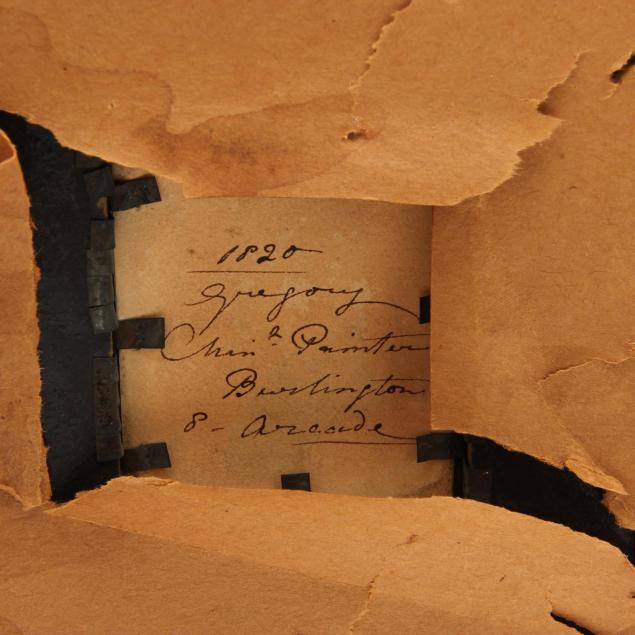 1820
Gregory
Min.ª Painter
Burlington
8 - Arcade